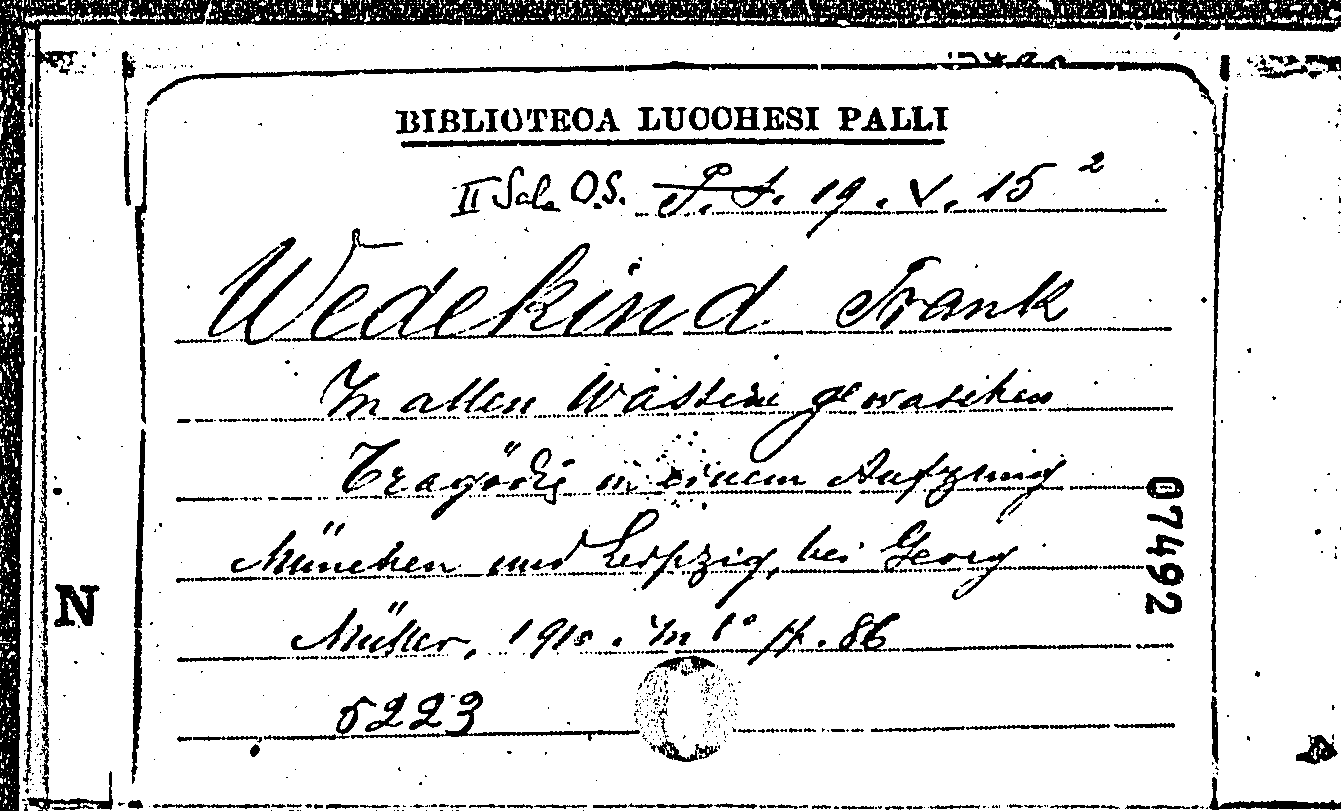 BIBLIOTECA LUCCHESI PALLI
II Sala O.S. P.S. 19. V. 15 2
Wedekind Frank
In allen Wassern gewaschen
Tragödie in einem Aufzung
München und Leipzig, bei Georg
Müller, 1910. In 8° pp. 86
5223
07492
N